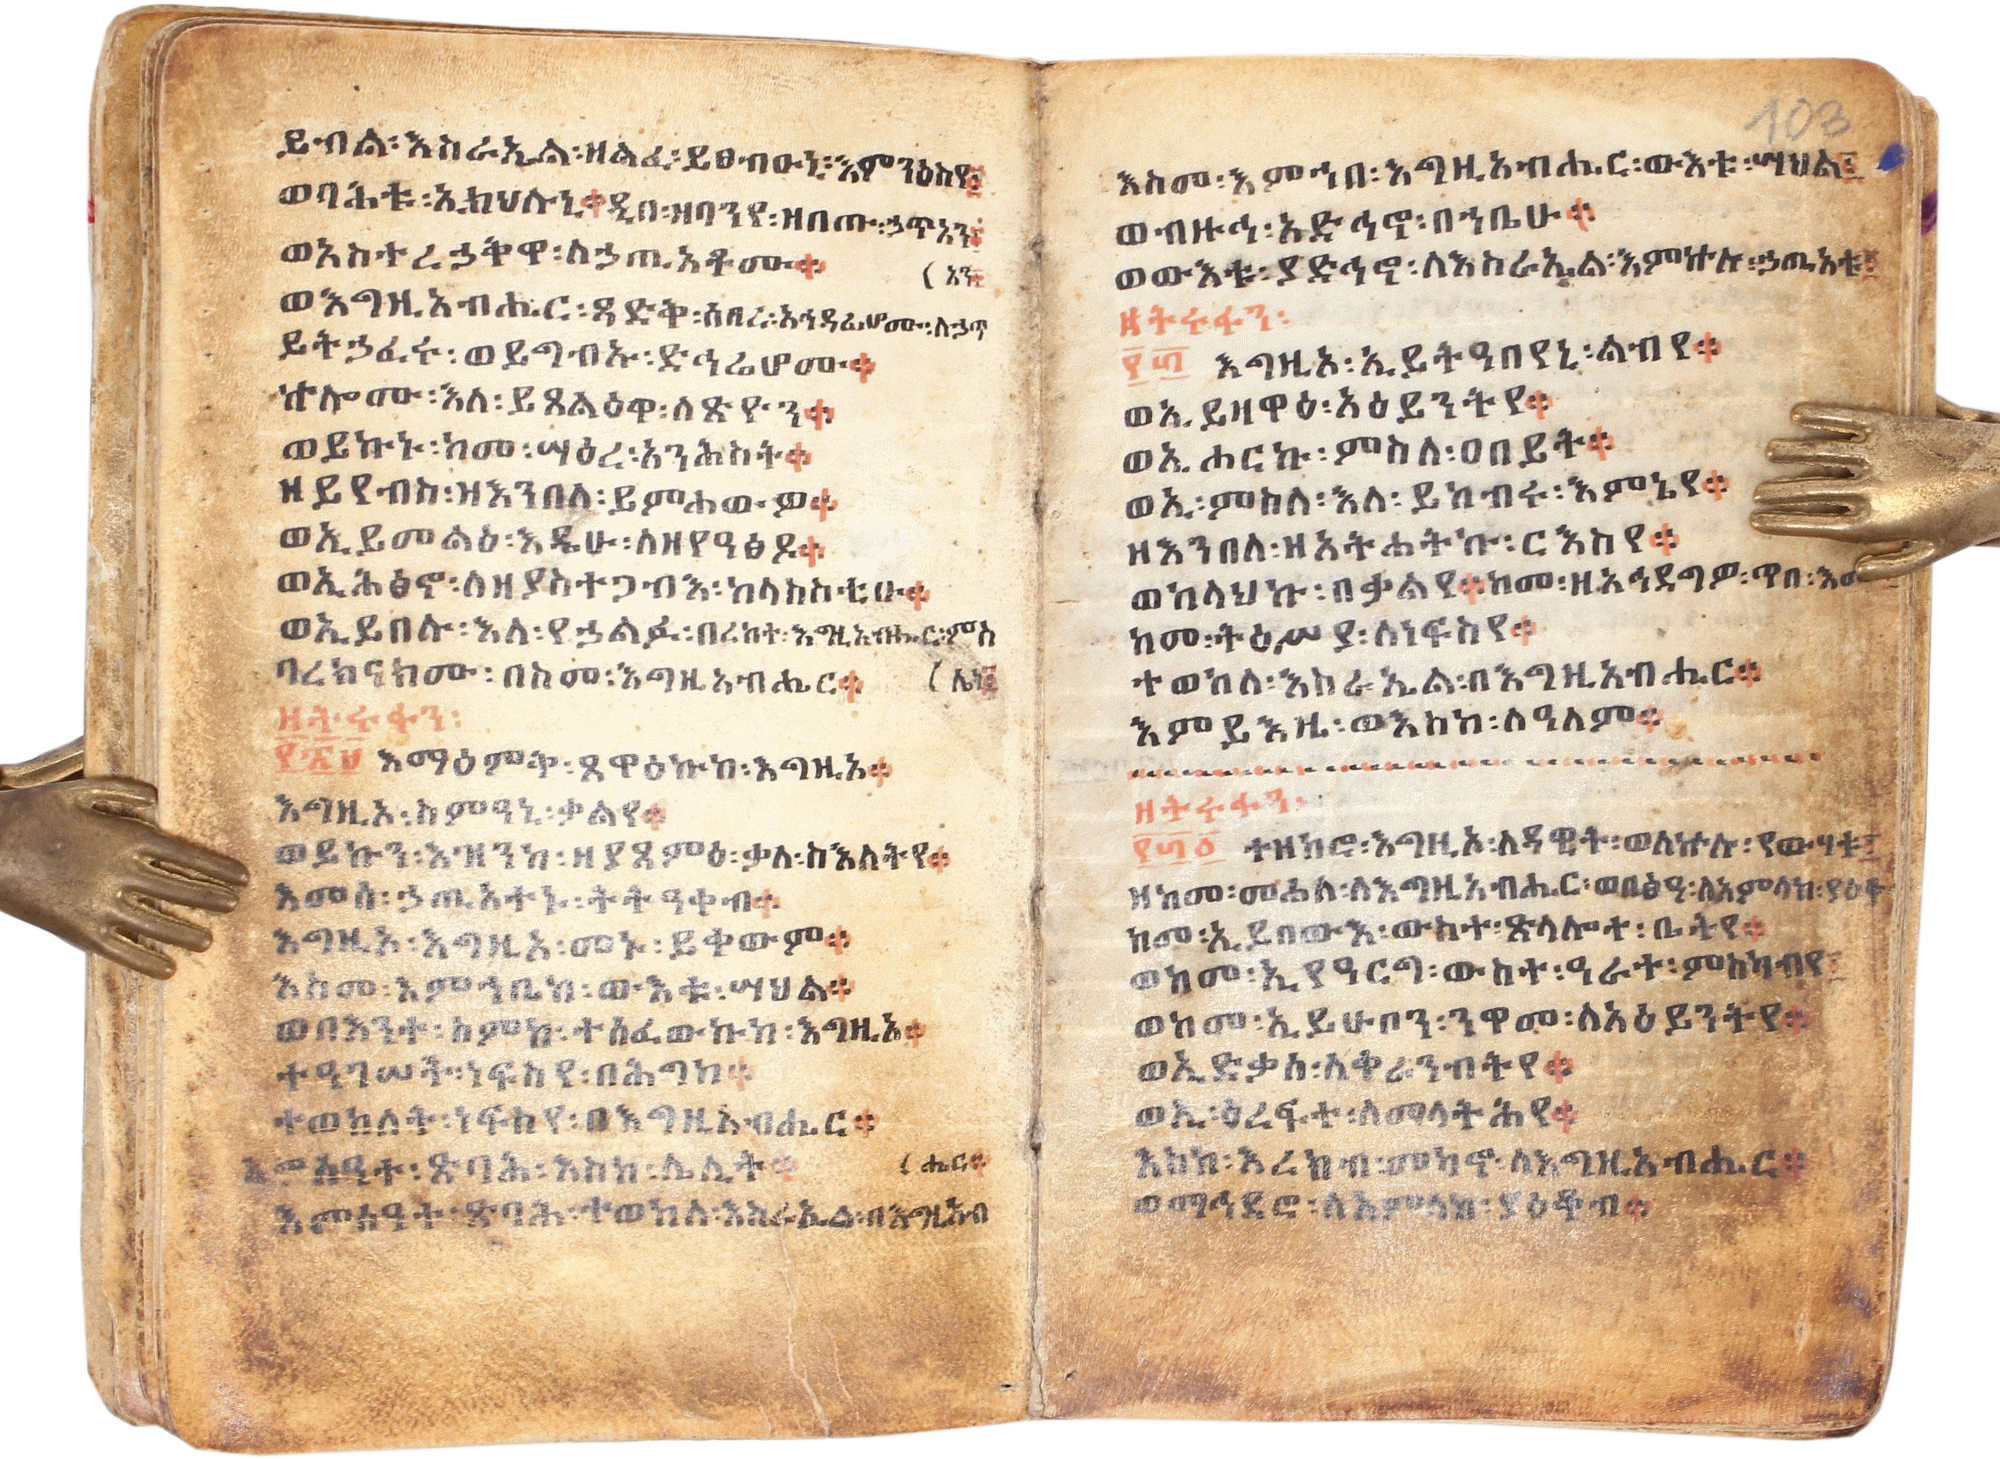 ይብል፡እስራኢል፡ዘልፈ፡ይፀብዑኒ፡እምንዕስየ፤
ወባሕቱ፡ኢክህሉኒ።ዲበ፡ዘባንየ፡ዘበጡ፡ኃጥአን፤
ወአስተረኃቅዋ፡ለኃጢአቶሙ።
(አን፤
ወእግዚአብሔር፡ጻድቅ፡ሰበረ፡አኅዳፊሆሙ፡ለኃጥ
ይትኃፈሩ፡ወይግብኡ፡ድኅሬሆሙ።
ኵሎሙ፡እለ፡ይጸልዕዋ፡ለጽዮን።
ወይኩኑ፡ከመ፡ሣዕረ፡አንሕስት።
ዘይየብስ፡ዘእንበለ፡ይምሐውዎ።
ወኢይመልዕ፡እዴሁ፡ለዘየዓፅዶ።
ወኢሕፅኖ፡ለዘያስተጋብእ፡ከላስስቲሁ።
ወኢይበሉ፡እለ፡የኃልፉ፡በረከተ፡እግዚአብሔር፡ምስ
ባረክናክሙ፡በስመ፡እግዚአብሔር።
(ሌክ፤
ዘትሩፋን፡
፻፳፱ እማዕምቅ፡ጸዋዕኩከ፡እግዚኦ።
እግዚኦ፡ስምዓኒ፡ቃልየ።
ወይኩን፡እዝንከ፡ዘያጸምዕ፡ቃለ፡ስእለትየ።
እመሰ፡ኃጢአተኑ፡ትትዓቀብ።
እግዚኦ፡እግዚኦ፡መኑ፡ይቀውም።
እስመ፡እምኅቤከ፡ውእቱ፡ሣህል።
ወበእንተ፡ስምከ፡ተሰፈውኩከ፡እግዚኦ።
ተዓገሠት፡ነፍስየ፡በሕግከ።
ተወከለት፡ነፍስየ፡በእግዚአብሔር።
እመሰዓተ፡ጽባሕ፡እስከ፡ሌሊት።
(ሔር።
እመሰዓት፡ጽባሕ፡ተወከለ፡እስራኢል፡በእግዚአብ
103
እስመ፡እምኀበ፡እግዚአብሔር፡ውእቱ፡ሣህል፤
ወብዙኅ፡አድኅኖ፡በኀቤሁ።
ወውእቱ፡ያድኅኖ፡ለእስራኢል፡እምኵሉ፡ኃጢአቱ፤
ዘትሩፋን፡
፻፴ እግዚኦ፡ኢይትዓበየኒ፡ልብየ።
ወኢይዘዋዕ፡አዕይንትየ።
ወኢሐርኩ፡ምስለ፡ዐበይት።
ወኢ፡ምስለ፡እለ፡ይከብሩ፡እምኔየ።
ዘእንበለ፡ዘአትሐትኩ፡ርእስየ።
ወከላህኩ፡በቃልየ።ከመ፡ዘአኅደግዎ፡ጥበ፡እመ
ከመ፡ትዕሥያ፡ለነፍስየ።
ተወከለ፡እስራኢል፡በእግዚአብሔር።
እምይእዜ፡ወእስከ፡ለዓለም።
ዘትሩፋን፡
፻፴፩ ተዘከሮ፡እግዚኦ፡ለዳዊት፡ወለኵሉ፡የውሃቱ፤
ዘከመ፡መሐለ፡ለእግዚአብሔር፡ወበፅዓ፡ለአምላከ፡ያዕቆ
ከመ፡ኢይበውእ፡ውስተ፡ጽላሎተ፡ቤትየ።
ወከመ፡ኢየዓርግ፡ውስተ፡ዓራተ፡ምስካብየ፤
ወከመ፡ኢይሁቦን፡ንዋመ፡ለአዕይንትየ።
ወኢድቃሰ፡ለቀራንብትየ።
ወኢ፡ዕረፍተ፡ለማላትሕየ።
እስከ፡እረክብ፡መካኖ፡ለእግዚአብሔር።
ወማኅደሮ፡ለአምላከ፡ያዕቆብ።